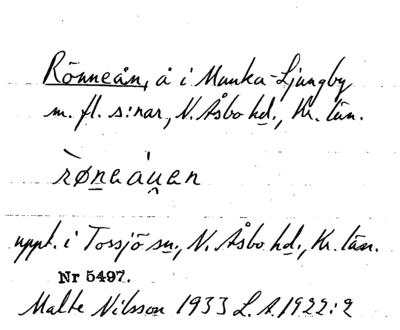 Rönneån, å i Munka-Ljungby
m. fl. s:nar, N. Åsbo hd., Kr. län.
røneáu̯en
uppt. i Tossjö sn., N. Åsbo hd., Kr. län.
Nr 5497.
Malte Nilsson 1933 L.A. 1922:2